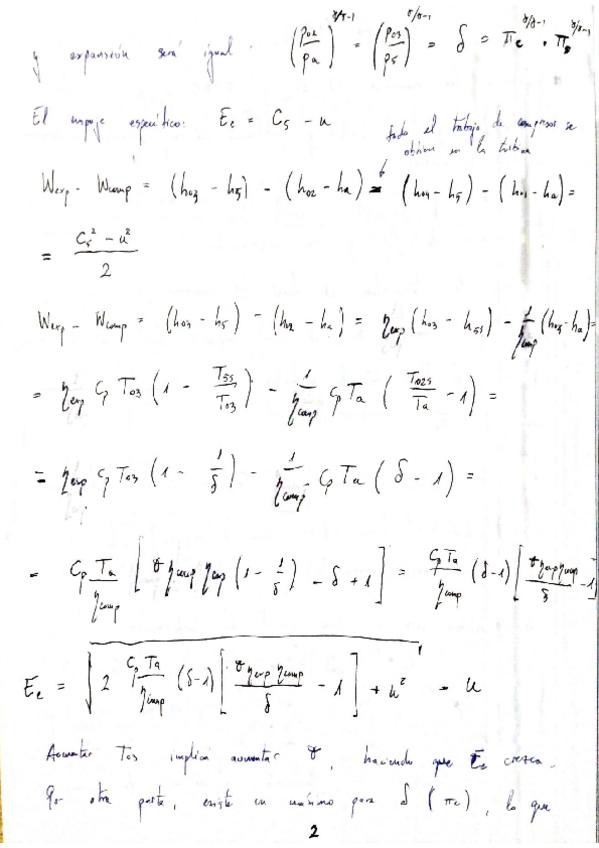 y expansión será igual. (p02/pa)^γ/γ-1 = (p03/p5)^γ/γ-1 = δ = πc^γ/γ-1 · πD^γ/γ-1
El empuje específico: Ee = C5 - u
todo el trabajo de compresor se
obtiene en la turbina
Wexp - Wcomp = (h03 - h5) - (h02 - ha) = (h04 - h5) - (h01 - ha) =
= (C5² - u²)/2
Wexp - Wcomp = (h03 - h5) - (h02 - ha) = ηexp (h03 - h5s) - 1/ηcomp (h03 - ha) =
= ηexp Cp T03 (1 - T5s/T03) - 1/ηcomp Cp Ta (T02s/Ta - 1) =
= ηexp Cp T03 (1 - 1/δ) - 1/ηcomp Cp Ta (δ - 1) =
= Cp Ta/ηcomp [θ ηcomp ηexp (1 - 1/δ) - δ + 1] = Cp Ta/ηcomp (δ-1) [θ ηexp ηcomp/δ - 1]
Ee = √(2 Cp Ta/ηcomp (δ-1) [θ ηexp ηcomp/δ - 1] + u²) - u
Aumentar T03 implica aumentar θ, haciendo que Ee crezca.
Por otra parte, existe un máximo para δ (πc), lo que
2